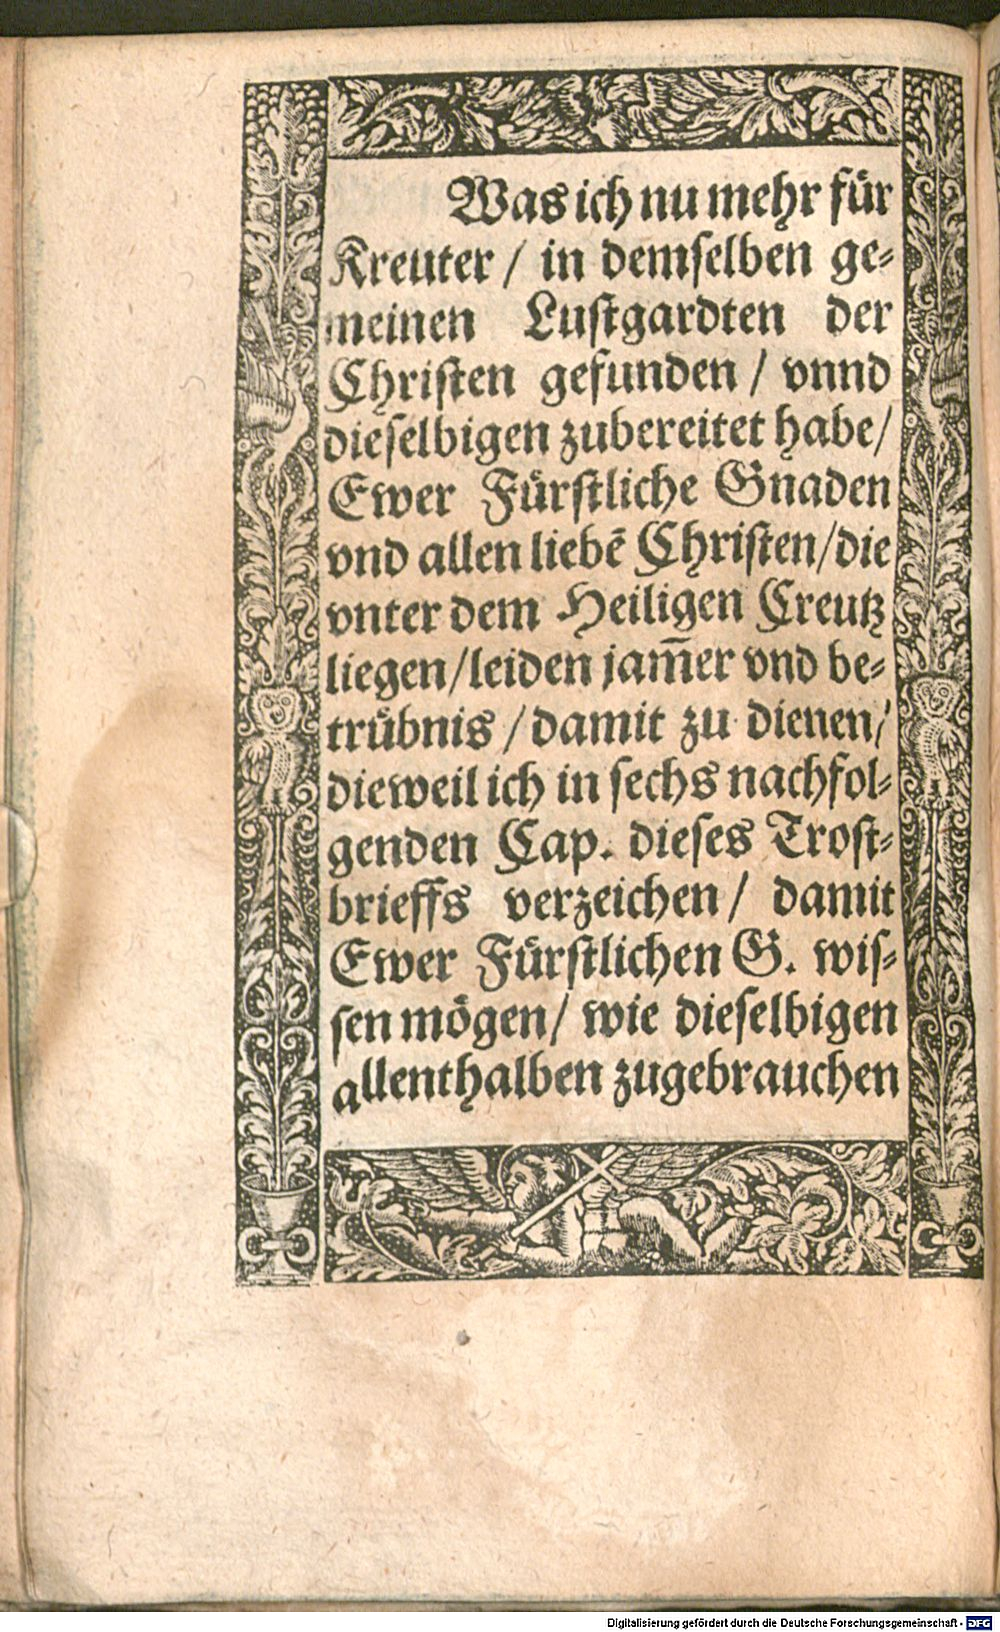 Was ich nu mehr für
Kreuter / in demselben ge-
meinen Lustgardten der
Christen gefunden / vnnd
dieselbigen zubereitet habe/
Ewer Fürstliche Gnaden
vnd allen liebē Christen/die
vnter dem Heiligen Creutz
liegen/leiden jam̄er vnd be-
trübnis / damit zu dienen/
dieweil ich in sechs nachfol-
genden Cap. dieses Trost-
brieffs verzeichen / damit
Ewer Fürstlichen G. wis-
sen mögen/ wie dieselbigen
allenthalben zugebrauchen
Digitalisierung gefördert durch die Deutsche Forschungsgemeinschaft - DFG